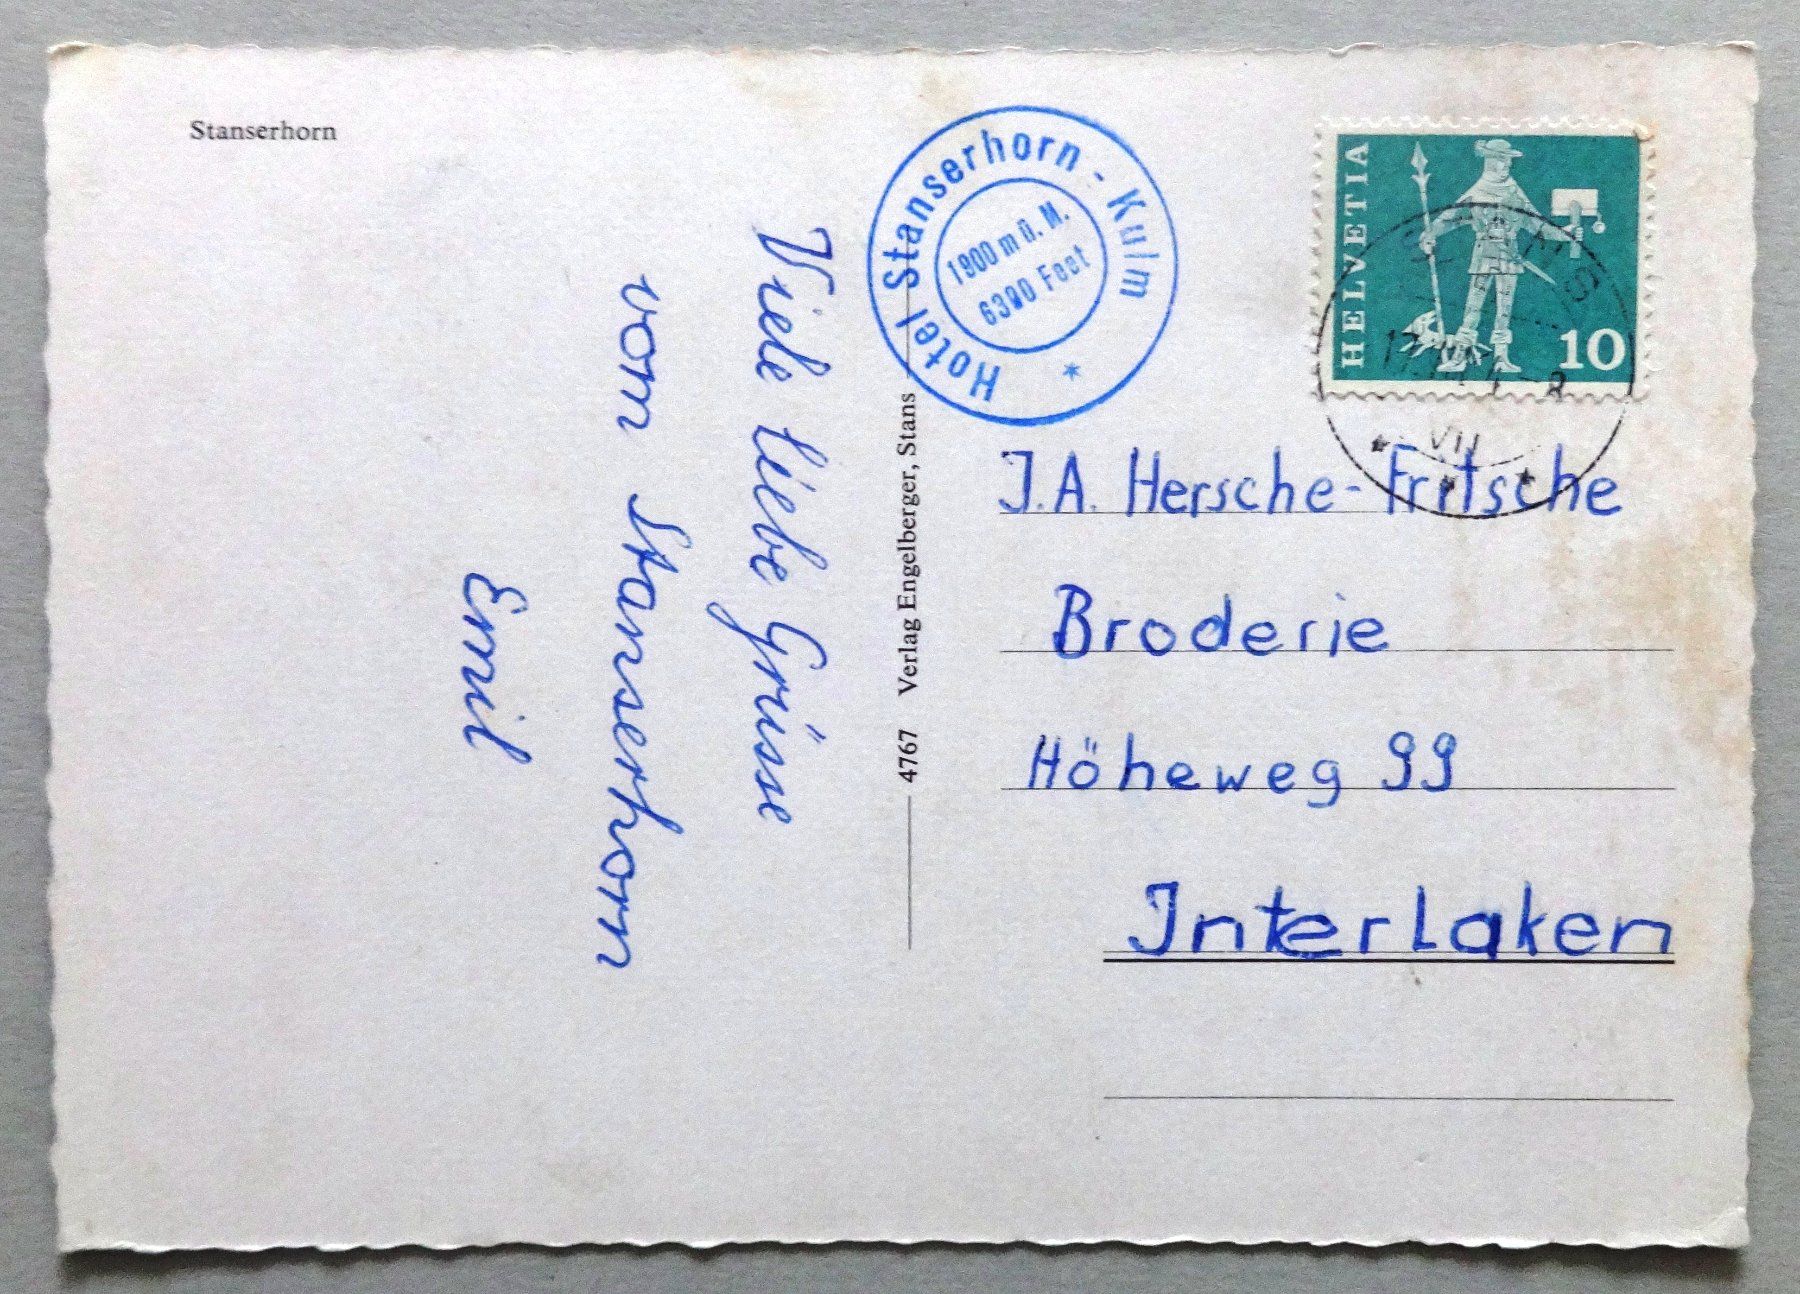 Stanserhorn
Hotel Stanserhorn - Kulm
1900 m ü. M.
6390 Feet
HELVETIA
10
VII
Viele liebe Grüsse
vom Stanserhorn
Emil
4767 Verlag Engelberger, Stans
J.A. Hersche-Fritsche
Broderie
Höheweg 99
Interlaken